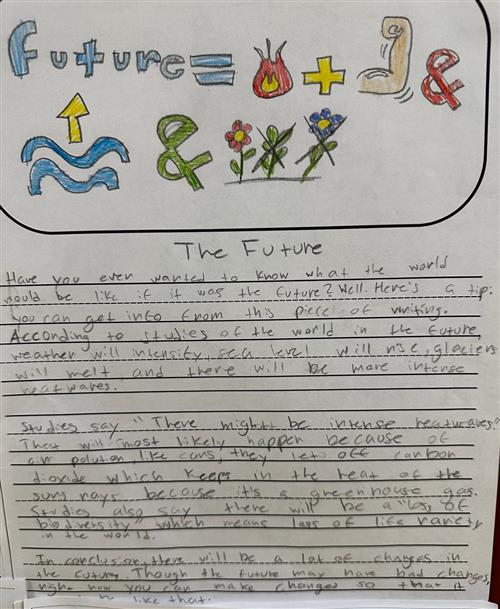 Future= + &
&
The Future
Have you ever wanted to know what the world
would be like if it was the future? Well. Here's a tip:
you can get info from this piece of writing.
According to studies of the world in the future,
weather will intensify, sea level will rise, glaciers
will melt, and there will be more intense
heatwaves.
Studies say "There might be intense heatwaves."
They will most likely happen because of
air polution, like cars, they let off carbon
dioxide which keeps in the heat of the
suns rays because it's a greenhouse gas.
Studies also say there will be a "loss of
biodiversity" which means loss of life variety
in the world.
In conclusion, there will be a lot of changes in
the future. Though the future may have bad changes,
right now you can make changes so that it
like that.